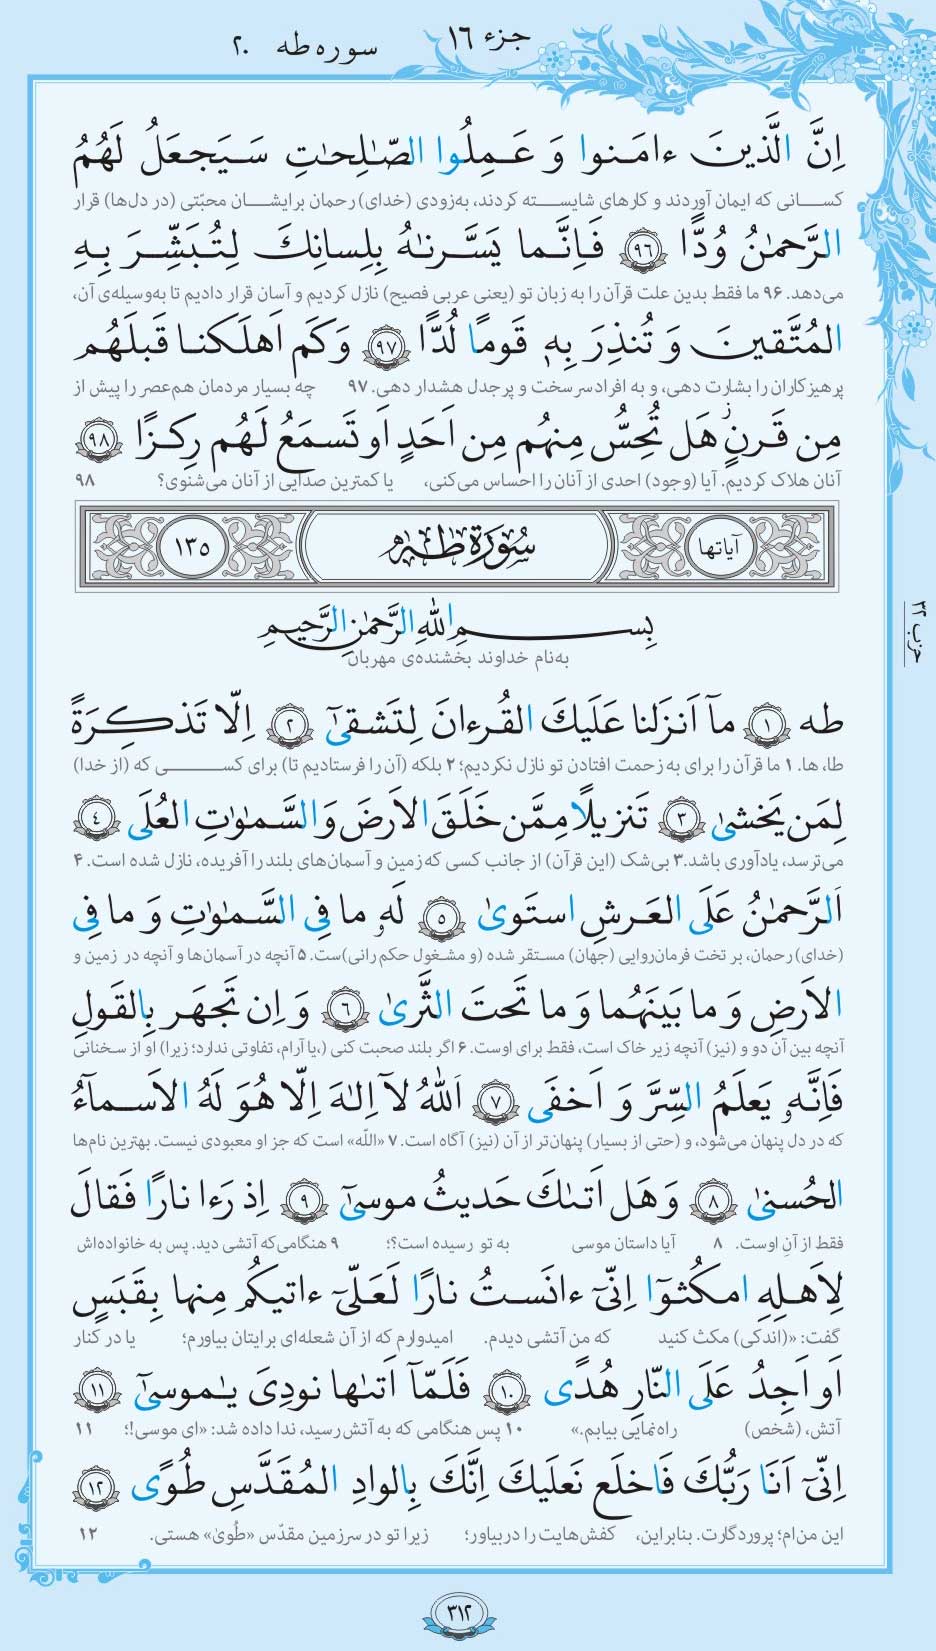 جزء ١٦
سوره طه ٢٠
اِنَّ الَّذینَ ءامَنوا وَ عَمِلُوا الصّٰلِحٰتِ سَیَجعَلُ لَهُمُ
کسـانی که ایمان آوردند و کارهای شایسـته کردند، به‌زودی (خدای) رحمان برایشـان محبّتی (در دل‌ها) قرار
الرَّحمٰنُ وُدًّا ﴿٩٦﴾ فَاِنَّما یَسَّرنٰهُ بِلِسانِكَ لِتُبَشِّرَ بِهِ
می‌دهد. ۹۶ ما فقط بدین علت قرآن را به زبان تو (یعنی عربی فصیح) نازل کردیم و آسان قرار دادیم تا به‌وسیله‌ی آن،
المُتَّقینَ وَ تُنذِرَ بِهٖ قَومًا لُدًّا ﴿٩٧﴾ وَکَم اَهلَکنا قَبلَهُم
پرهیزکاران را بشارت دهی، و به افراد سرسخت و پرجدل هشدار دهی. ۹۷ چه بسیار مردمان هم‌عصر را پیش از
مِن قَرنٍ هَل تُحِسُّ مِنهُم مِن اَحَدٍ اَو تَسمَعُ لَهُم رِکزًا ﴿٩٨﴾
آنان هلاک کردیم. آیا (وجود) احدی از آنان را احساس می‌کنی، یا کمترین صدایی از آنان می‌شنوی؟ ۹۸
آیاتها سُورَة طٰهٰ ١٣٥
حزب ٣٢
بِسمِ اللهِ الرَّحمٰنِ الرَّحیمِ
به‌نام خداوند بخشنده‌ی مهربان
طه ﴿١﴾ مآ اَنزَلنا عَلَیكَ القُرءانَ لِتَشقیٰٓ ﴿٢﴾ اِلّا تَذکِرَةً
طا، ها. ۱ ما قرآن را برای به زحمت افتادن تو نازل نکردیم؛ ۲ بلکه (آن را فرستادیم تا) برای کسـی که (از خدا)
لِمَن یَخشیٰ ﴿٣﴾ تَنزیلًا مِمَّن خَلَقَ الاَرضَ وَ السَّمٰوٰتِ العُلَی ﴿٤﴾
می‌ترسد، یادآوری باشد. ۳ بی‌شک (این قرآن) از جانب کسی که زمین و آسمان‌های بلند را آفریده، نازل شده است. ۴
اَلرَّحمٰنُ عَلَی العَرشِ استَویٰ ﴿٥﴾ لَهٗ ما فِی السَّمٰوٰتِ وَ ما فِی
(خدای) رحمان، بر تخت فرمان‌روایی (جهان) مسـتقر شده (و مشـغول حکم رانی)ست. ۵ آنچه در آسمان‌ها و آنچه در زمین و
الاَرضِ وَ ما بَینَهُما وَ ما تَحتَ الثَّریٰ ﴿٦﴾ وَ اِن تَجهَر بِالقَولِ
آنچه بین آن دو و (نیز) آنچه زیر خاک است، فقط برای اوست. ۶ اگر بلند صحبت کنی (،یا آرام، تفاوتی ندارد؛ زیرا) او از سخنانی
فَاِنَّهٗ یَعلَمُ السِّرَّ وَ اَخفَی ﴿٧﴾ اَللهُ لآ اِلٰهَ اِلّا هُوَ لَهُ الاَسمآءُ
که در دل پنهان می‌شود، و (حتی از بسیار) پنهان‌تر از آن (نیز) آگاه است. ۷ «الله» است که جز او معبودی نیست. بهترین نام‌ها
الحُسنیٰ ﴿٨﴾ وَ هَل اَتىٰكَ حَدیثُ موسیٰٓ ﴿٩﴾ اِذ رَءا نارًا فَقالَ
فقط از آنِ اوست. ۸ آیا داستان موسی به تو رسیده است؟؛ ۹ هنگامی‌که آتشی دید. پس به خانواده‌اش
لِاَهلِهِ امکُثوٓا اِنّیٓ ءانَستُ نارًا لَعَلّیٓ ءاتیکُم مِنها بِقَبَسٍ
گفت: «(اندکی) مکث کنید که من آتشی دیدم. امیدوارم که از آن شعله‌ای برایتان بیاورم؛ یا در کنار
اَو اَجِدُ عَلَی النّارِ هُدًی ﴿١٠﴾ فَلَمّآ اَتىٰها نودِیَ یٰموسیٰٓ ﴿١١﴾
آتش، (شخص) راه‌نمایی بیابم.» ۱۰ پس هنگامی که به آتش رسید، ندا داده شد: «ای موسی!؛ ۱۱
اِنّیٓ اَنَا رَبُّكَ فَاخلَع نَعلَیكَ اِنَّكَ بِالوادِ المُقَدَّسِ طُوًی ﴿١٢﴾
این من‌ام؛ پروردگارت. بنابراین، کفش‌هایت را دربیاور؛ زیرا تو در سرزمین مقدّس «طُویٰ» هستی. ۱۲
٣١٢